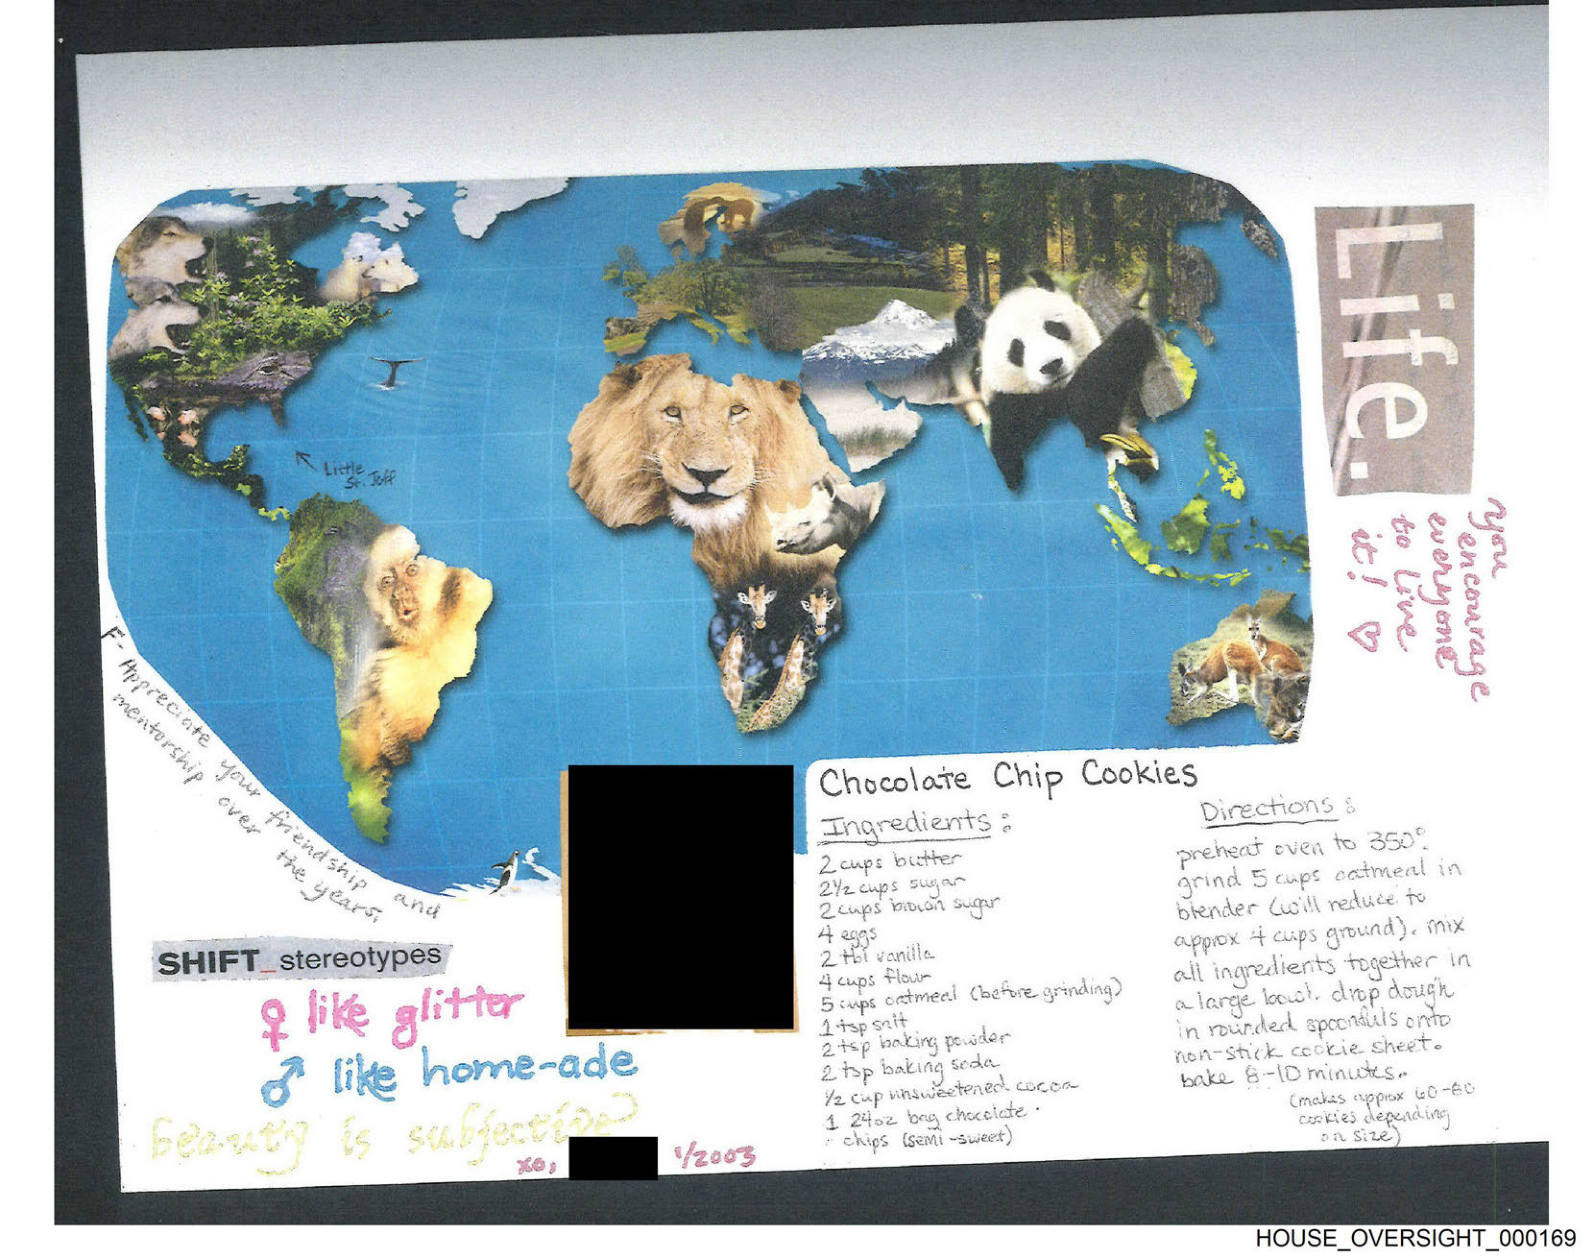 Life.
you
encourage
everyone
to live
it! ♡
Little
St. Jeff
F- Appreciate your friendship and
mentorship over the years,
SHIFT_stereotypes
♀ like glitter
♂ like home-ade
beauty is subjective
xo,
1/2003
Chocolate Chip Cookies
Ingredients:
2 cups butter
2½ cups sugar
2 cups brown sugar
4 eggs
2 tbl vanilla
4 cups flour
5 cups oatmeal (before grinding)
1 tsp salt
2 tsp baking powder
2 tsp baking soda
½ cup unsweetened cocoa
1 24oz bag chocolate
chips (semi-sweet)
Directions:
preheat oven to 350°.
grind 5 cups oatmeal in
blender (will reduce to
approx 4 cups ground). mix
all ingredients together in
a large bowl. drop dough
in rounded spoonfuls onto
non-stick cookie sheet.
bake 8-10 minutes.
(makes approx 60-80
cookies depending
on size)
HOUSE_OVERSIGHT_000169